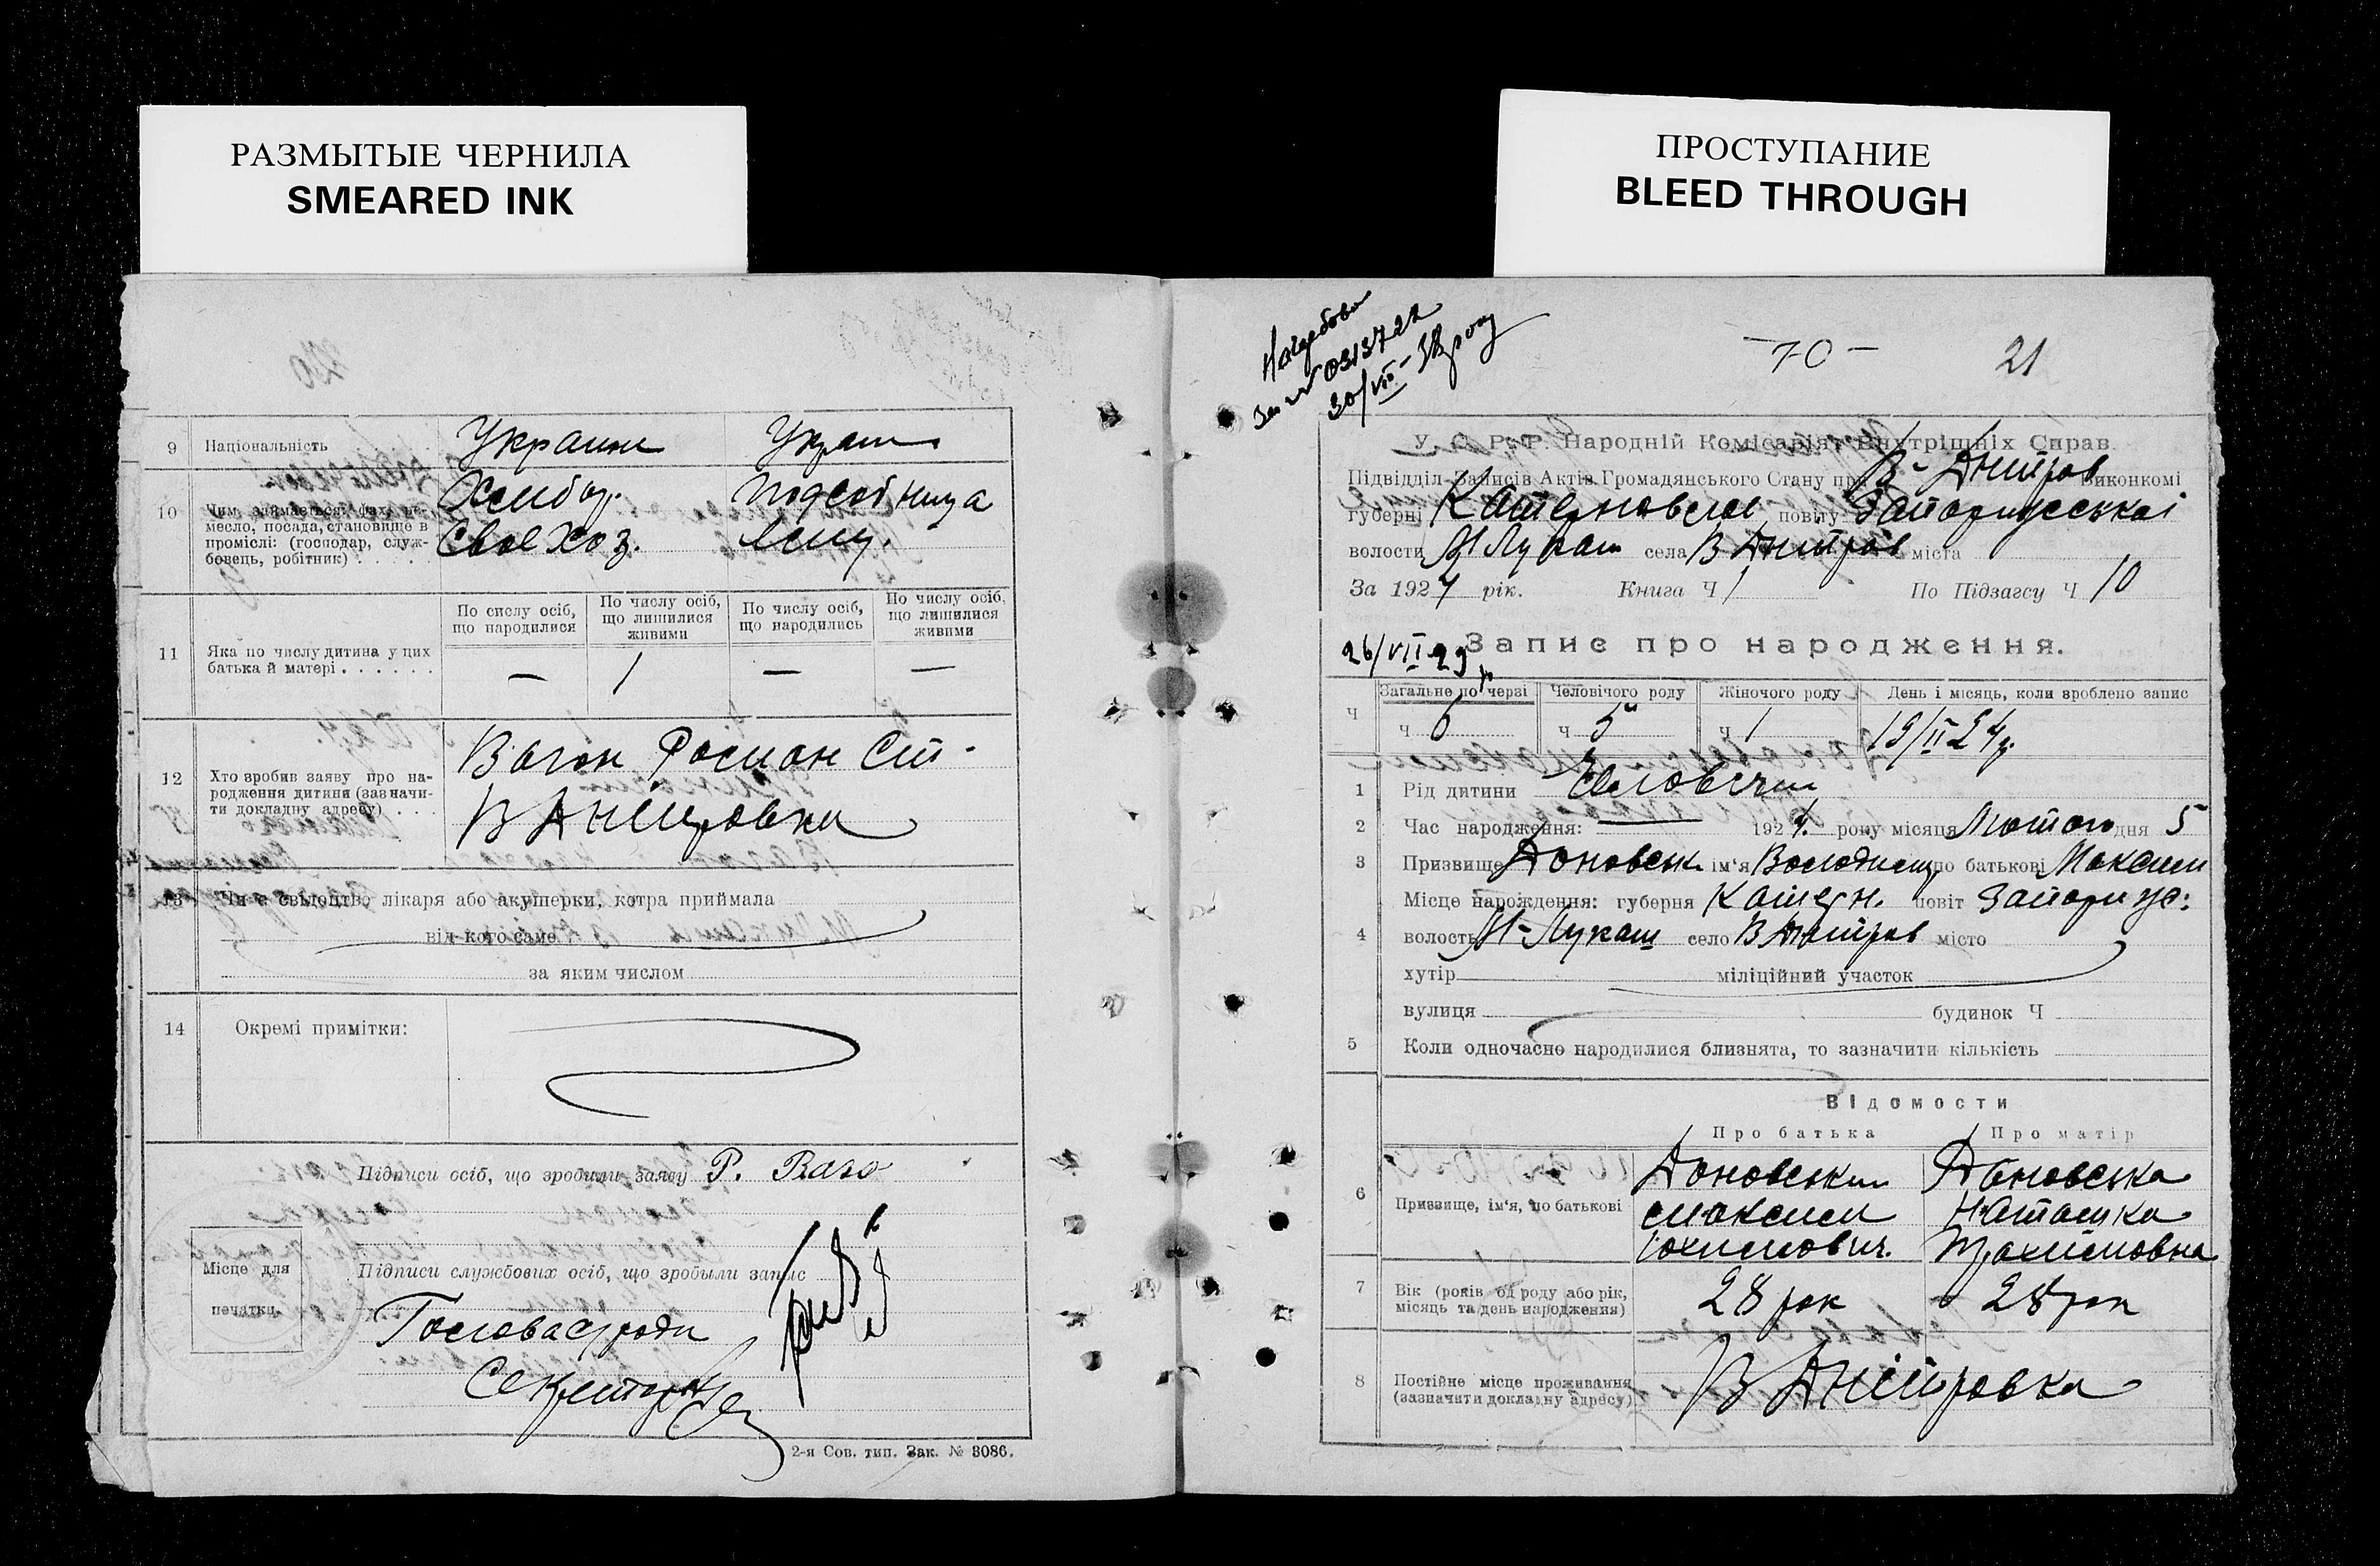 РАЗМЫТЫЕ ЧЕРНИЛА
SMEARED INK
ПРОСТУПАНИЕ
BLEED THROUGH
9 Національність Украин Украин
10 Чим займається: фах, ре-
месло, посада, становище в
проміслі: (господар, служ-
бовець, робітник)
Хлибор.
Свое хоз.
11 Яка по числу дитина у цих
батька й матері
По числу осіб,
що народилися
По числу осіб,
що лишилися
живими
По числу осіб,
що народились
По числу осіб,
що лишилися
живими
— 1 — —
12 Хто зробив заяву про на-
родження дитини (зазначи-
ти докладну адресу)
Ваган Роман Ст
В Дніпровка
13 Чи є свідоцтво лікаря або акушерки, котра приймала
від кого саме
за яким числом
14 Окремі примітки:
Підписи осіб, що зробили заяву Р. Ваго
Місце для
печатки.
Підписи службових осіб, що зробыли запис
Голова с/ради
Секретарь
2-я Сов. тип. Зак. № 3086.
за № 0313722
30/VII-38 року
-70- 21
У. С. Р. Р. Народній Комісаріят Внутрішніх Справ
Підвідділ Записів Актів Громадянського Стану при В-Дніпров Виконкомі
губерні Катерновскої повіту Запорижської
волости М Лукаш села В Дніпров міста
За 1924 рік. Книга Ч 1 По Підзагсу Ч 10
26/VII 29 р
Запис про народження.
Ч Загальне по черзі Человічого роду Жіночого роду День і місяць, коли зроблено запис
ч 6 ч 5 ч 1 19/II 24 р.
1 Рід дитини Человечи
2 Час народження: 1924 року місяця Лютого дня 5
3 Призвище Доновськ ім'я Володимир по батькові Максим
4 Місце народження: губерня Катерн. повіт Запориж:
волость М-Лукаш село В Дніпров місто
хутір міліційний участок
вулиця будинок Ч
5 Коли одночасно народилися близнята, то зазначити кількість
Відомости
Про батька Про матір
6 Призвище, ім'я, по батькові
Доновськи Доновська
Максим Наташка
Юхимович. Трохимовна
7 Вік (років од роду або рік,
місяць та день народження)
28 рок 28 рок
8 Постійне місце проживання
(зазначити докладну адресу)
В Дніпровка